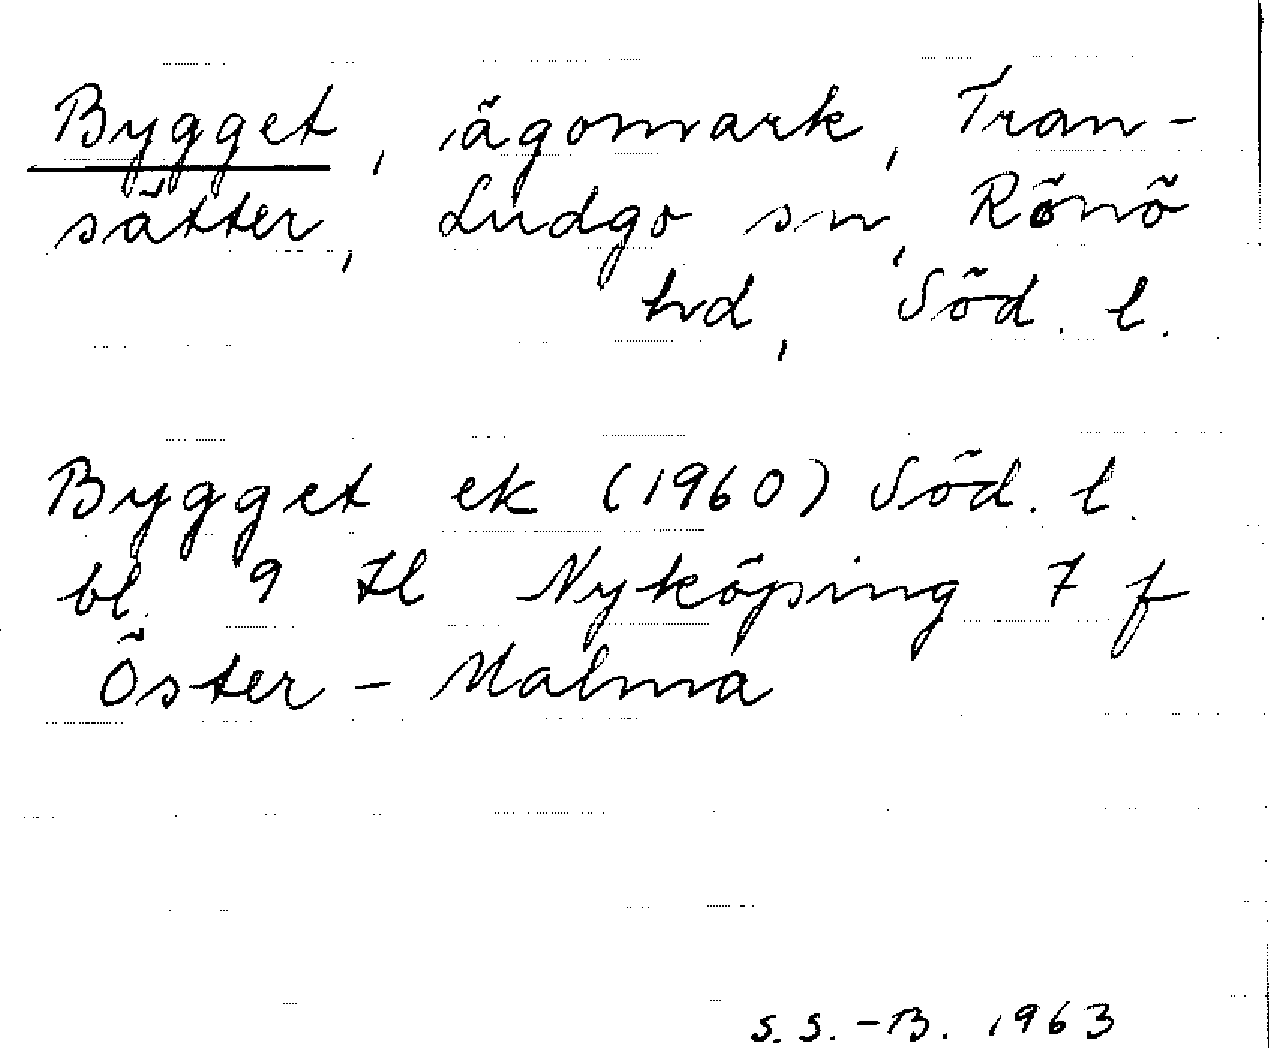 Bygget, ägomark, Tran-
sätter, Ludgo sn, Rönö
hd, Söd. l.
Bygget ek (1960) Söd. l.
bl. 9 Il Nyköping 7 f
Öster-Malma
S. S.-B. 1963